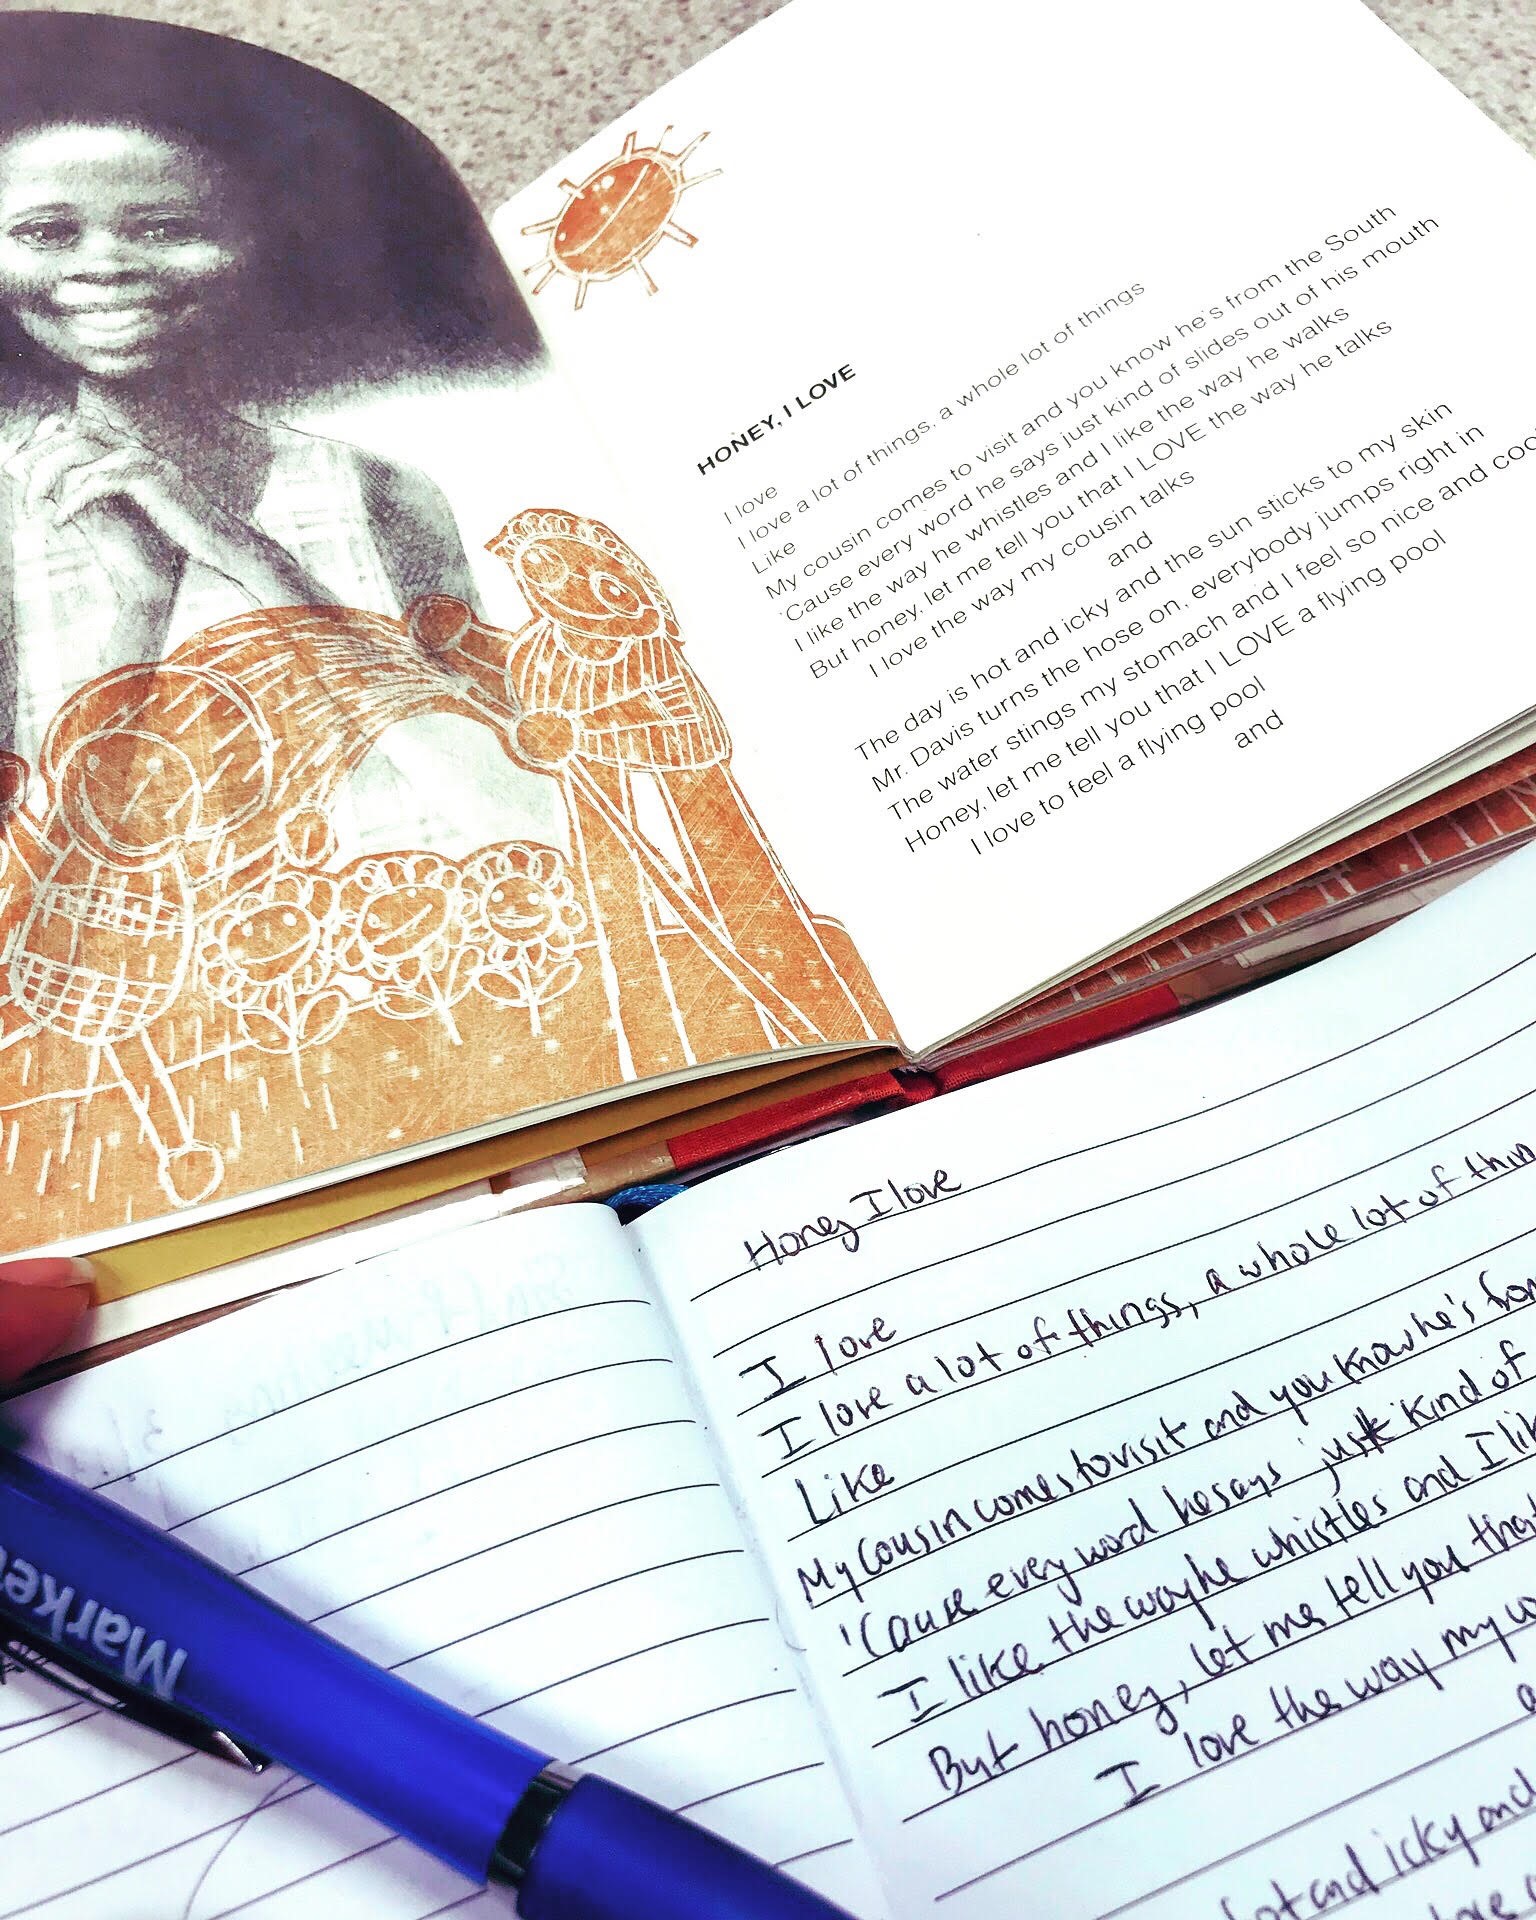 HONEY, I LOVE
I love
I love a lot of things, a whole lot of things
Like
My cousin comes to visit and you know he's from the South
'Cause every word he says just kind of slides out of his mouth
I like the way he whistles and I like the way he walks
But honey, let me tell you that I LOVE the way he talks
I love the way my cousin talks
and
The day is hot and icky and the sun sticks to my skin
Mr. Davis turns the hose on, everybody jumps right in
The water stings my stomach and I feel so nice and coo
Honey, let me tell you that I LOVE a flying pool
I love to feel a flying pool
and
Honey I love
I love
I love a lot of things, a whole lot of thin
Like
My cousin comes to visit and you know he's from
'Cause every word he says just kind of
I like the way he whistles and I lik
But honey, let me tell you that
I love the way my
hot and icky and
Marke